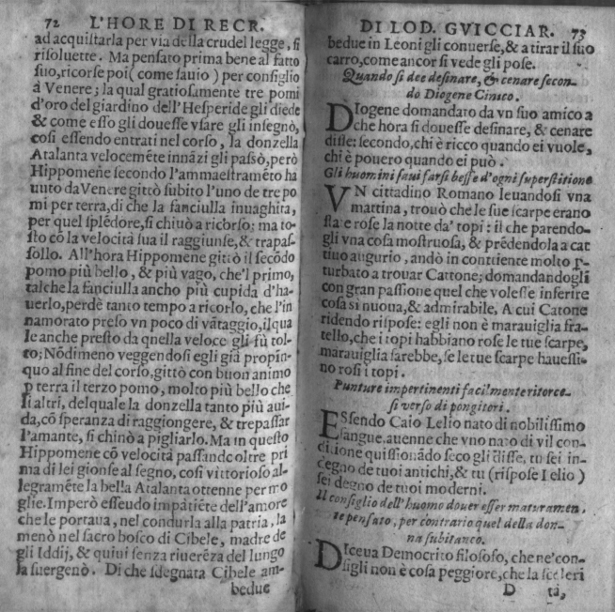 72 L'HORE DI RECR.
ad acquistarla per via della crudel legge, si
risoluette. Ma pensato prima bene al fatto
suo, ricorse poi (come sauio) per consiglio
à Venere; la qual gratiosamente tre pomi
d'oro del giardino dell'Hesperide gli diede
& come esso gli douesse vsare gli insegnò,
così essendo entrati nel corso, la donzella
Atalanta velocemẽte innãzi gli passò, però
Hippomene secondo l'ammaestramẽto ha
uuto da Venere gittò subito l'uno de tre po
mi per terra, di che la fanciulla inuaghita,
per quel splẽdore, si chiuò a ricorso: ma to-
sto cõ la velocità sua il raggiunse, & trapas-
sollo. All'hora Hippomene gittò il secõdo
pomo più bello, & più vago, che'l primo,
talche la fanciulla ancho più cupida d'ha-
uerlo, perdè tanto tempo a ricorlo, che l'in
namorato preso vn poco di vãtaggio, ilqua
le anche presto da quella veloce gli fù tol-
to; Nõdimeno veggendosi egli già propin-
quo al fine del corso, gittò con buon animo
p terra il terzo pomo, molto più bello che
li altri, del quale la donzella tanto più aui-
da, cõ speranza di raggiongere, & trepassar
l'amante, si chinò a pigliarlo. Ma in questo
Hippomene cõ velocità passando oltre pri
ma di lei gionse al segno, così vittorioso al-
legramẽte la bella Atalanta ottenne per mo
glie. Imperò essendo impatiẽte dell'amore
che le portaua, nel condurla alla patria, la
menò nel sacro bosco di Cibele, madre de
gli Iddij, & quiui senza riuerẽza del lungo
la suergenò. Di che sdegnata Cibele am-
bedue
DI LOD. GVICCIAR. 73
bedue in Leoni gli conuerse, & a tirar il suo
carro, come ancor si vede gli pose.
Quando si dee desinare, & cenare secon-
do Diogene Cinico.
DIogene domandato da vn suo amico a
che hora si douesse desinare, & cenare
disse: secondo, chi è ricco quando ei vuole,
chi è pouero quando ei può.
Gli huomini saui farsi beffe d'ogni superstitione
VN cittadino Romano leuandosi vna
mattina, trouò che le sue scarpe erano
sta e rose la notte da' topi: il che parendo-
gli vna cosa mostruosa, & prẽdendola a cat
tiuo augurio, andò in contiente molto p-
turbato a trouar Cattone; domandandogli
con gran passione quel che volesse inferire
cosa si nuoua, & admirabile, A cui Catone
ridendo rispose: egli non è marauiglia fra-
tello, che i topi habbiano rose le tue scarpe,
marauiglia sarebbe, se le tue scarpe hauessi-
no rosi i topi.
Punture impertinenti facilmente ritorce-
si verso di pongitori.
ESsendo Caio Lelio nato di nobilissimo
sangue, auenne che vno nato di vil con-
ditione quistionãdo seco gli disse, tu sei in-
degno de tuoi antichi, & tu (rispose Lelio)
sei degno de tuoi moderni.
Il consiglio dell'huomo douer esser maturamen-
te pensato, per contrario quel della don-
na subitanco.
DIceua Democrito filosofo, che ne' con-
sigli non è cosa peggiore, che la sceleri
D tà,